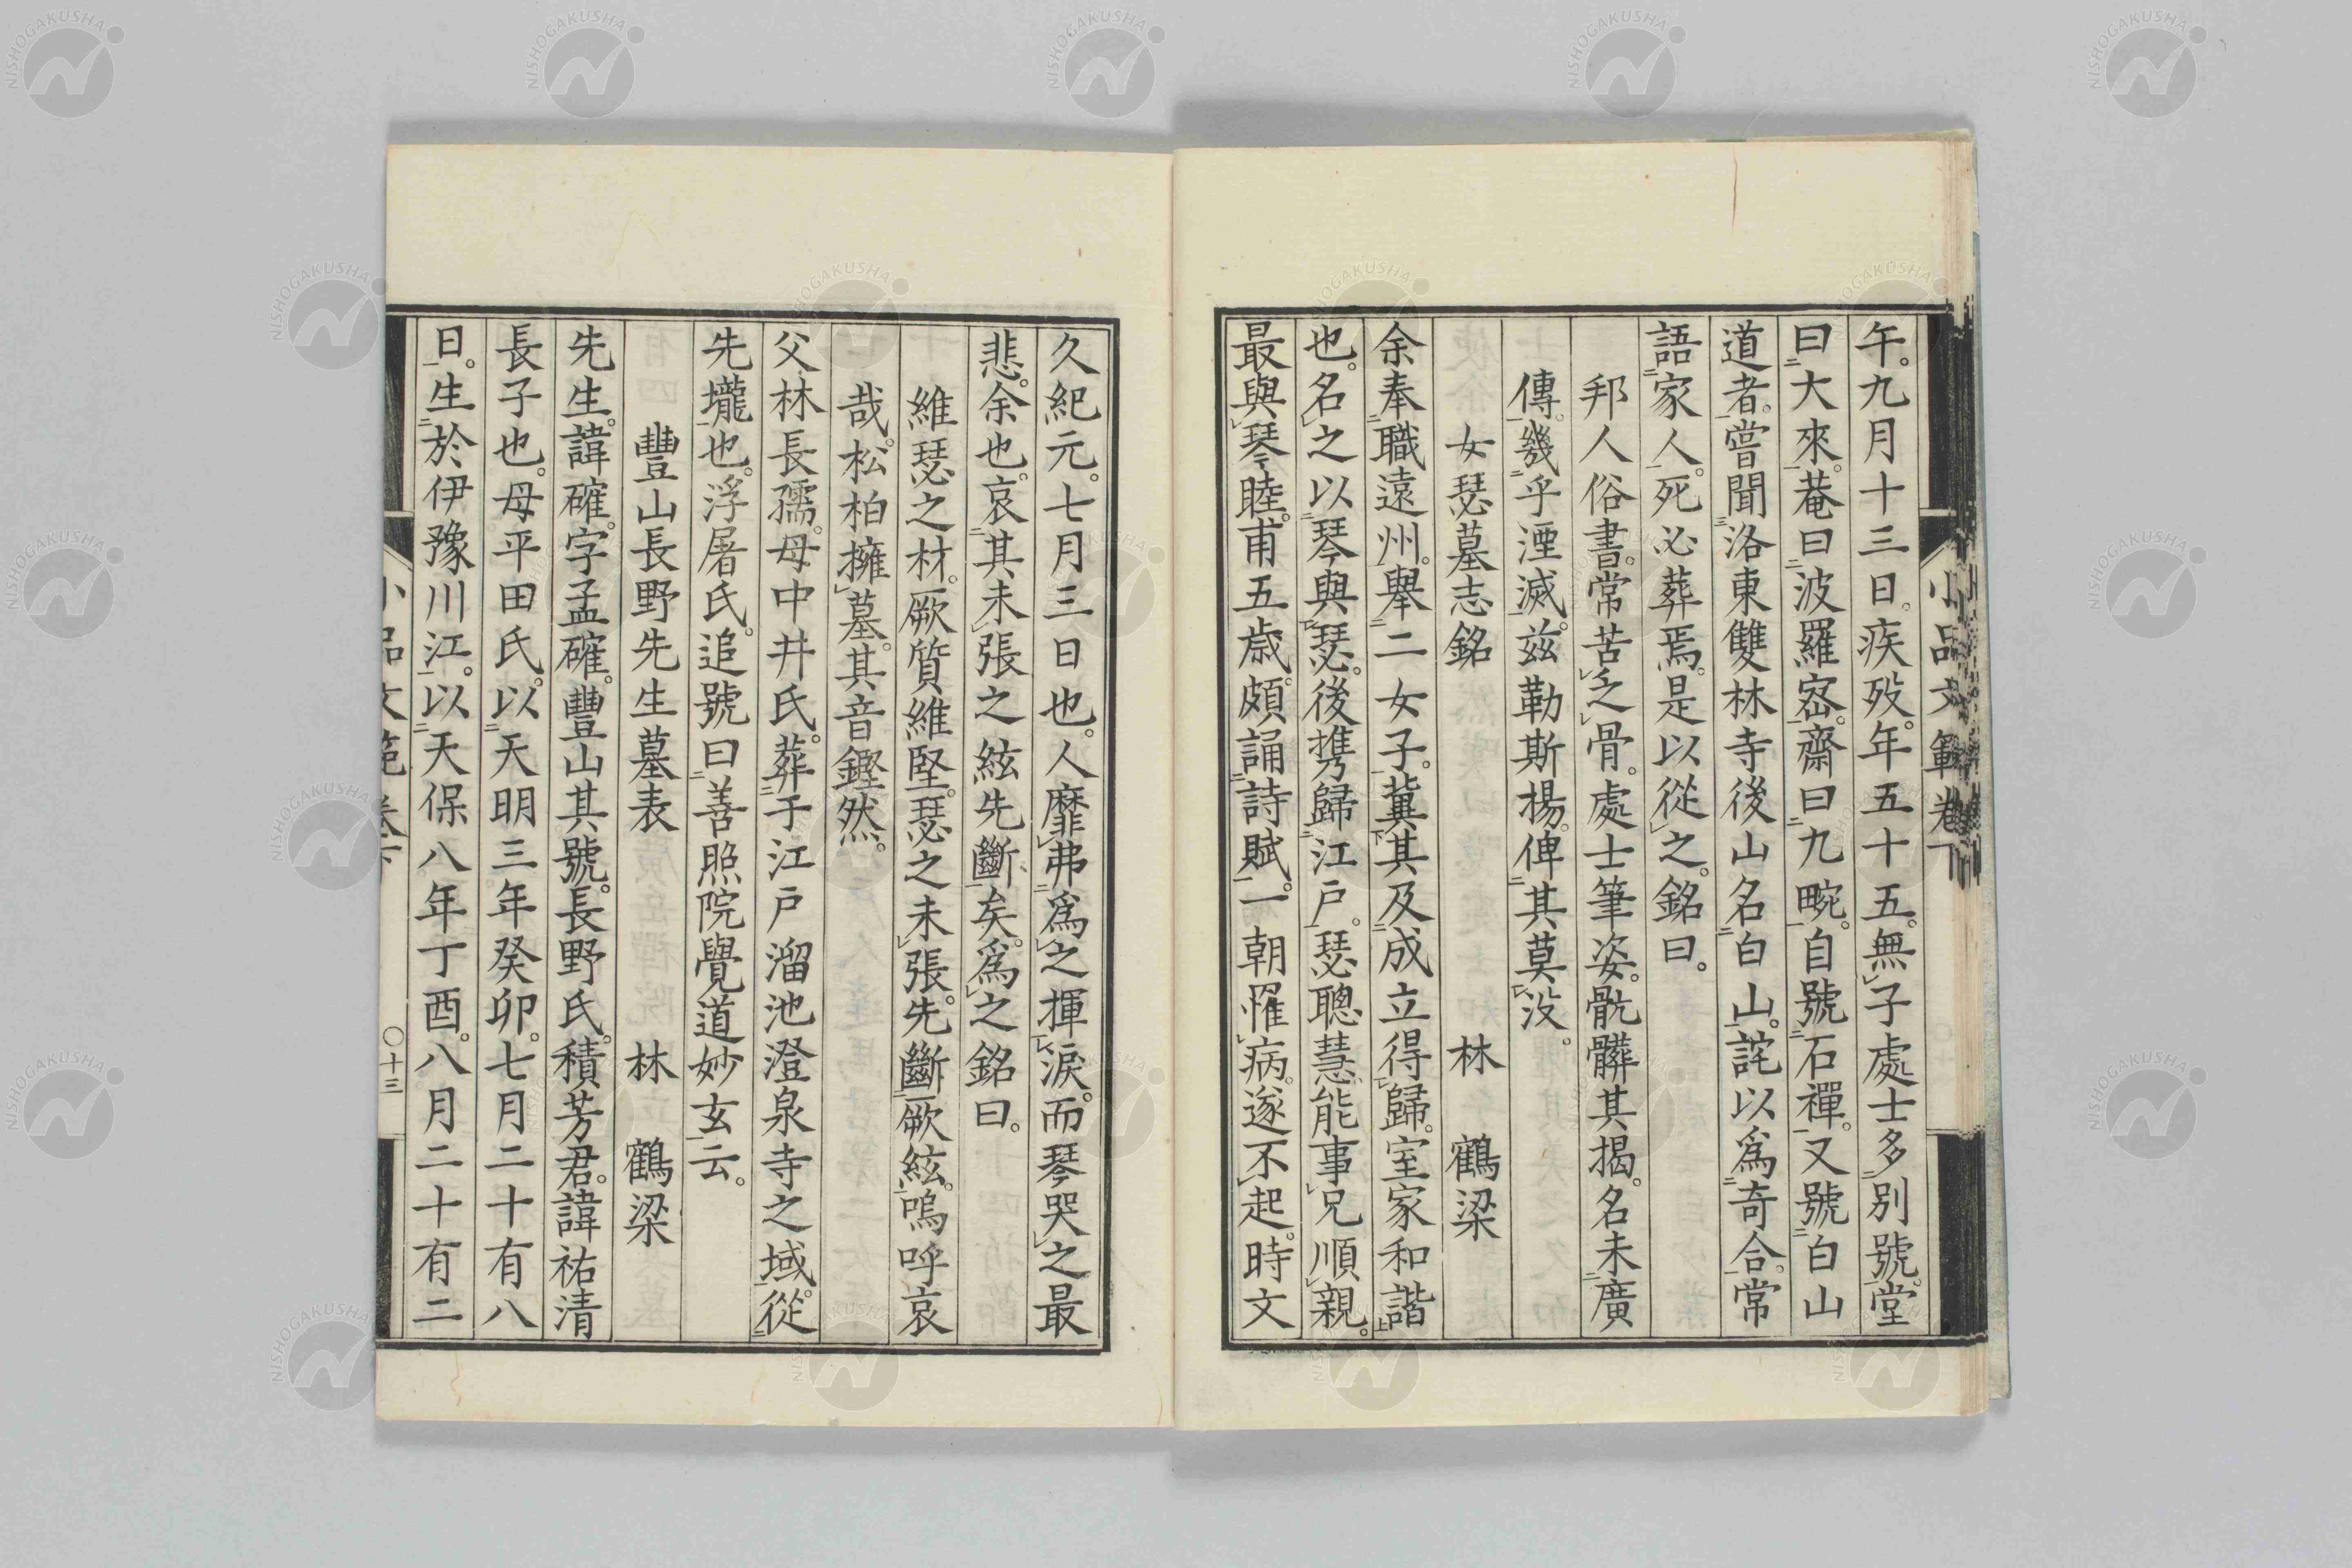 小品文範卷下
午。九月十三日。疾歿。年五十五。無子處士多別號。堂
曰大來。菴曰波羅窓。齋曰九畹。自號石禪。又號白山
道者。嘗聞洛東雙林寺後山名白山。詫以爲奇合。常
語家人。死必葬焉。是以從之。銘曰。
邦人俗書。常苦乏骨。處士筆姿。骯髒其揭。名未廣
傳。幾乎湮滅。茲勒斯揚。俾其莫沒。
女瑟墓志銘 林 鶴梁
余奉職遠州。舉二女子。冀其及成立得歸。室家和諧
也。名之以琴與瑟。後携歸江戸。瑟聰慧能事兄順親。
最與琴睦。甫五歲。頗誦詩賦。一朝罹病。遂不起。時文
久紀元。七月三日也。人靡弗爲之揮淚。而琴哭之最
悲。余也。哀其未張之絃先斷矣。爲之銘曰。
維瑟之材。厥質維堅。瑟之未張。先斷厥絃。嗚呼哀
哉。松柏擁墓。其音鏗然。
父林長孺。母中井氏。葬于江戸溜池澄泉寺之域。從
先壠也。浮屠氏。追號曰善照院覺道妙玄云。
豐山長野先生墓表 林 鶴梁
先生。諱確。字孟確。豐山其號。長野氏。積芳君。諱祐清
長子也。母平田氏。以天明三年癸卯。七月二十有八
日。生於伊豫川江。以天保八年丁酉。八月二十有二
小品文範卷下
〇十三
NISHOGAKUSHA